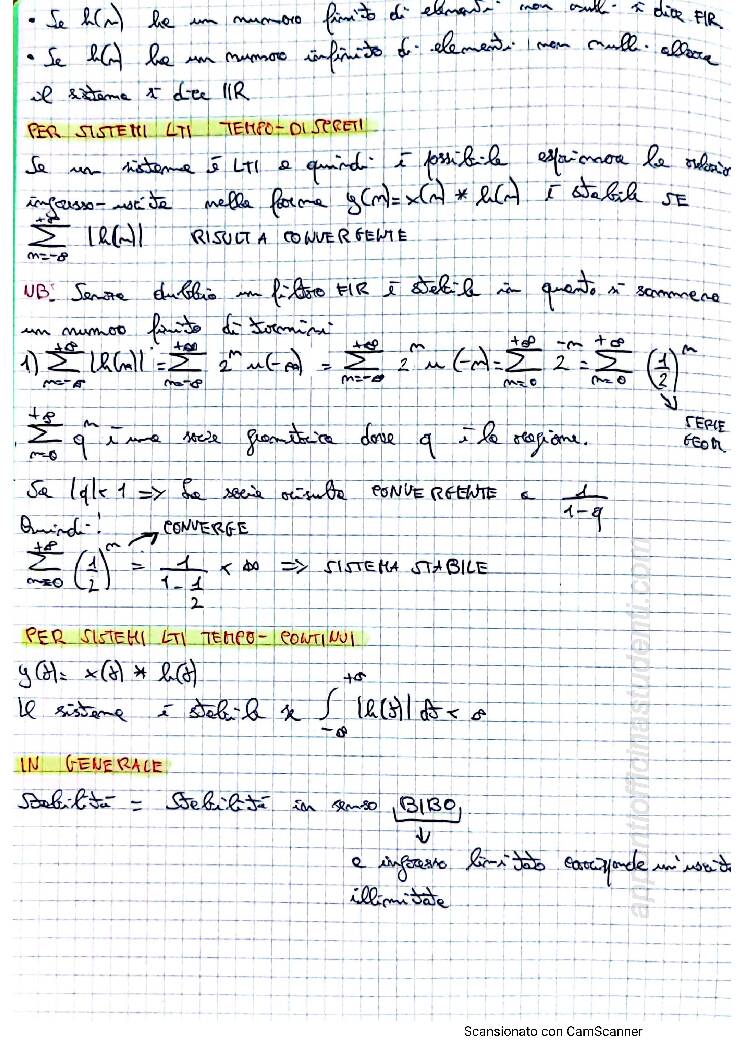 • Se h(n) ha un numero finito di elementi non nulli si dice FIR
• Se h(n) ha un numero infinito di elementi non nulli allora
il sistema si dice IIR
PER SISTEMI LTI TEMPO-DISCRETI
Se un sistema è LTI e quindi è possibile esprimere la relazio
ingresso-uscita nella forma y(n)=x(n) * h(n) è stabile SE
+∞ Σ n=-∞ |h(n)| RISULTA CONVERGENTE
NB: Senza dubbio un filtro FIR è stabile in quanto si sommano
un numero finito di termini
1) +∞ Σ n=-∞ |h(n)| = +∞ Σ n=-∞ 2^n u(-n) = +∞ Σ n=-∞ 2^n u(-n) = +∞ Σ n=0 2^-n = +∞ Σ n=0 (1/2)^n
SERIE
GEOM
+∞ Σ n=0 q^n è una serie geometrica dove q è la ragione.
Se |q|<1 => La serie risulta CONVERGENTE a 1/(1-q)
Quindi: → CONVERGE
+∞ Σ n=0 (1/2)^n = 1/(1-1/2) < ∞ => SISTEMA STABILE
PER SISTEMI LTI TEMPO-CONTINUI
y(t)= x(t) * h(t)
Il sistema è stabile se ∫ -∞ +∞ |h(t)| dt < ∞
IN GENERALE
Stabilità = Stabilità in senso BIBO
↓
a ingresso limitato corrisponde un'uscita
illimitata
appuntiofficinastudenti.com
Scansionato con CamScanner